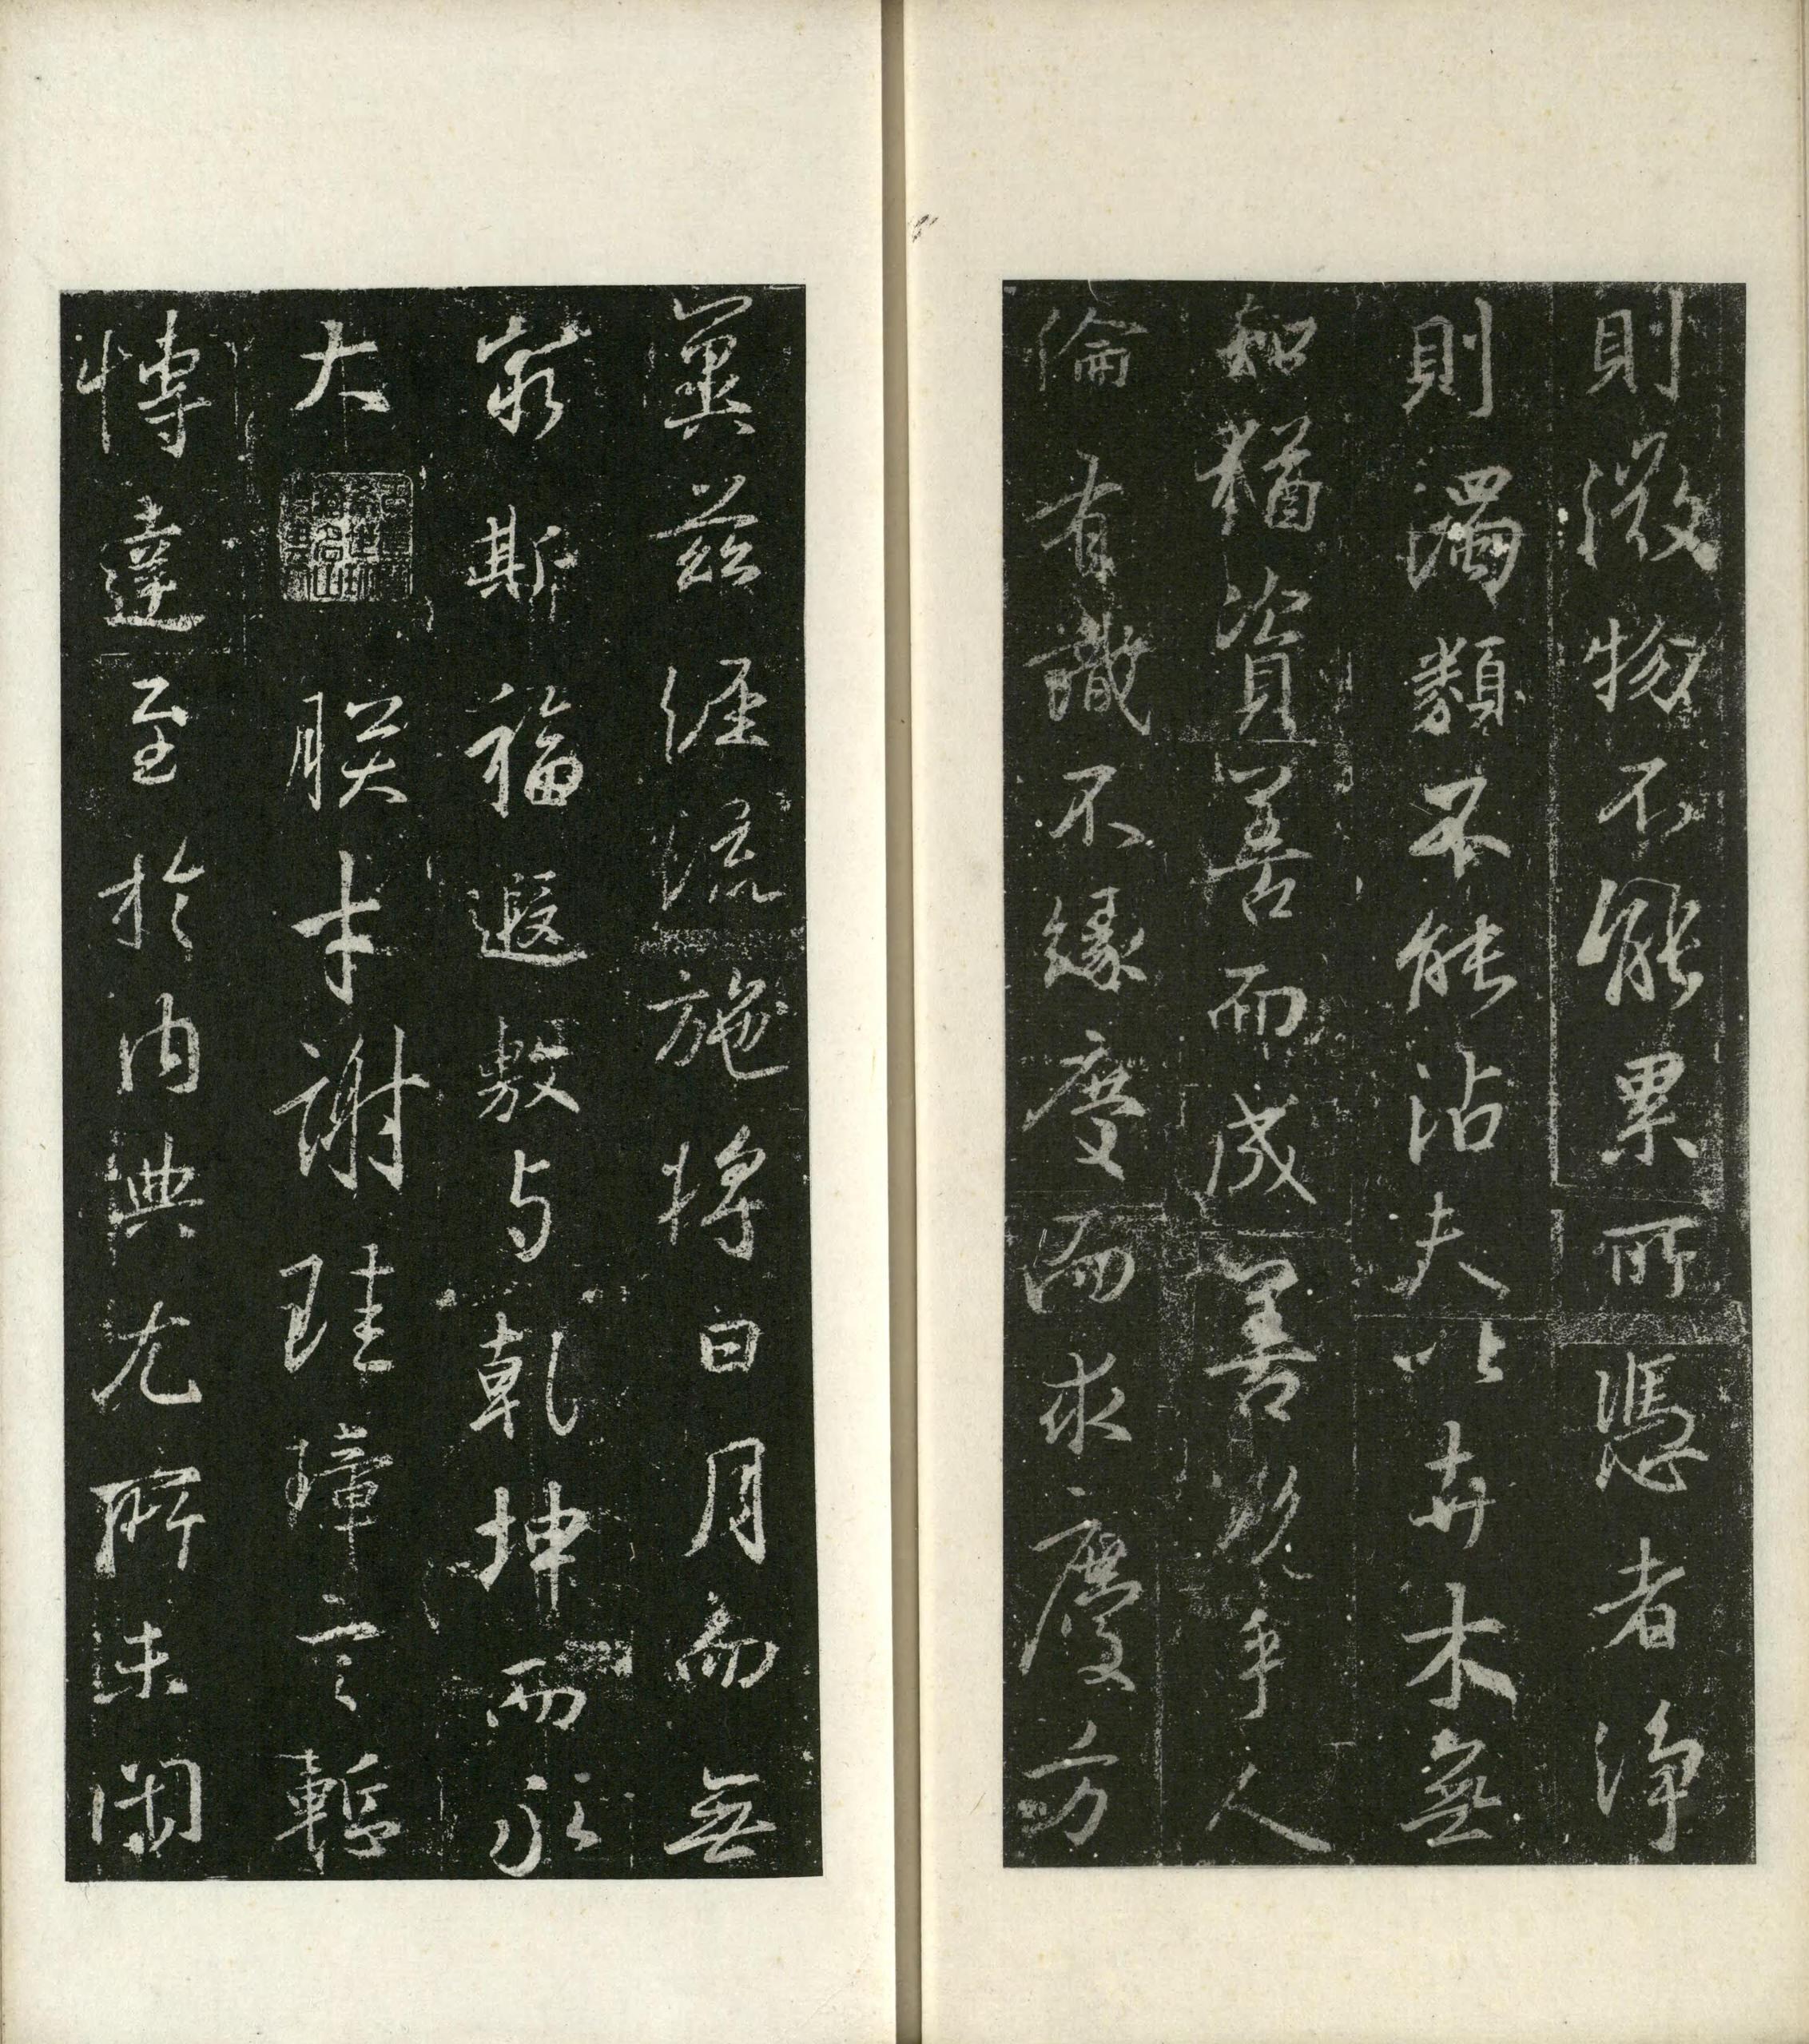 則微物不能累所憑者淨
則濁類不能沾夫以卉木無
知猶資善而成善況乎人
倫有識不緣慶而求慶方
冀茲經流施將日月而無
窮斯福遐敷與乾坤而永
大朕才謝珪璋言慚
博達至於內典尤所未閑